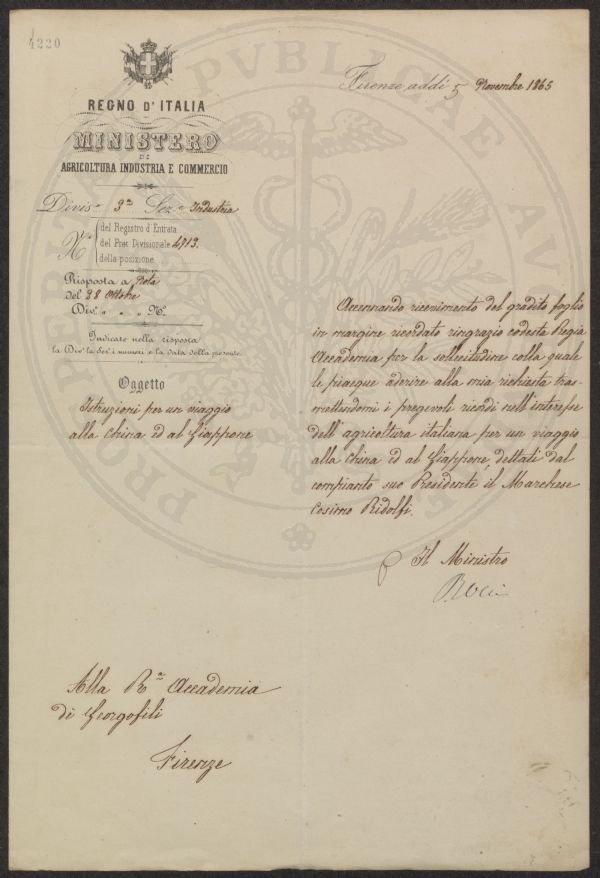 4220
REGNO D'ITALIA
MINISTERO
DI
AGRICOLTURA INDUSTRIA E COMMERCIO
Divis.e 3a Sez.e Industria
N.i
del Registro d'Entrata
del Prot. Divisionale 4913.
della posizione
Risposta a Nota
del 28 Ottobre
Div.e " " " N.
Indicare nella risposta
la Div.e la Sez.e i numeri e la data della presente.
Oggetto
Istruzioni per un viaggio
alla China ed al Giappone
Firenze addì 5 Novembre 1865
Accennando ricevimento del gradito foglio
in margine ricordato ringrazio codesta Regia
Accademia per la sollecitudine colla quale
le piacque aderire alla mia richiesta tras-
mettendomi i pregevoli ricordi nell'interesse
dell'agricoltura italiana per un viaggio
alla China ed al Giappone, dettati dal
compianto suo Presidente il Marchese
Cosimo Ridolfi.
Il Ministro
Alla R.a Accademia
di Georgofili
Firenze
PVBLICAE